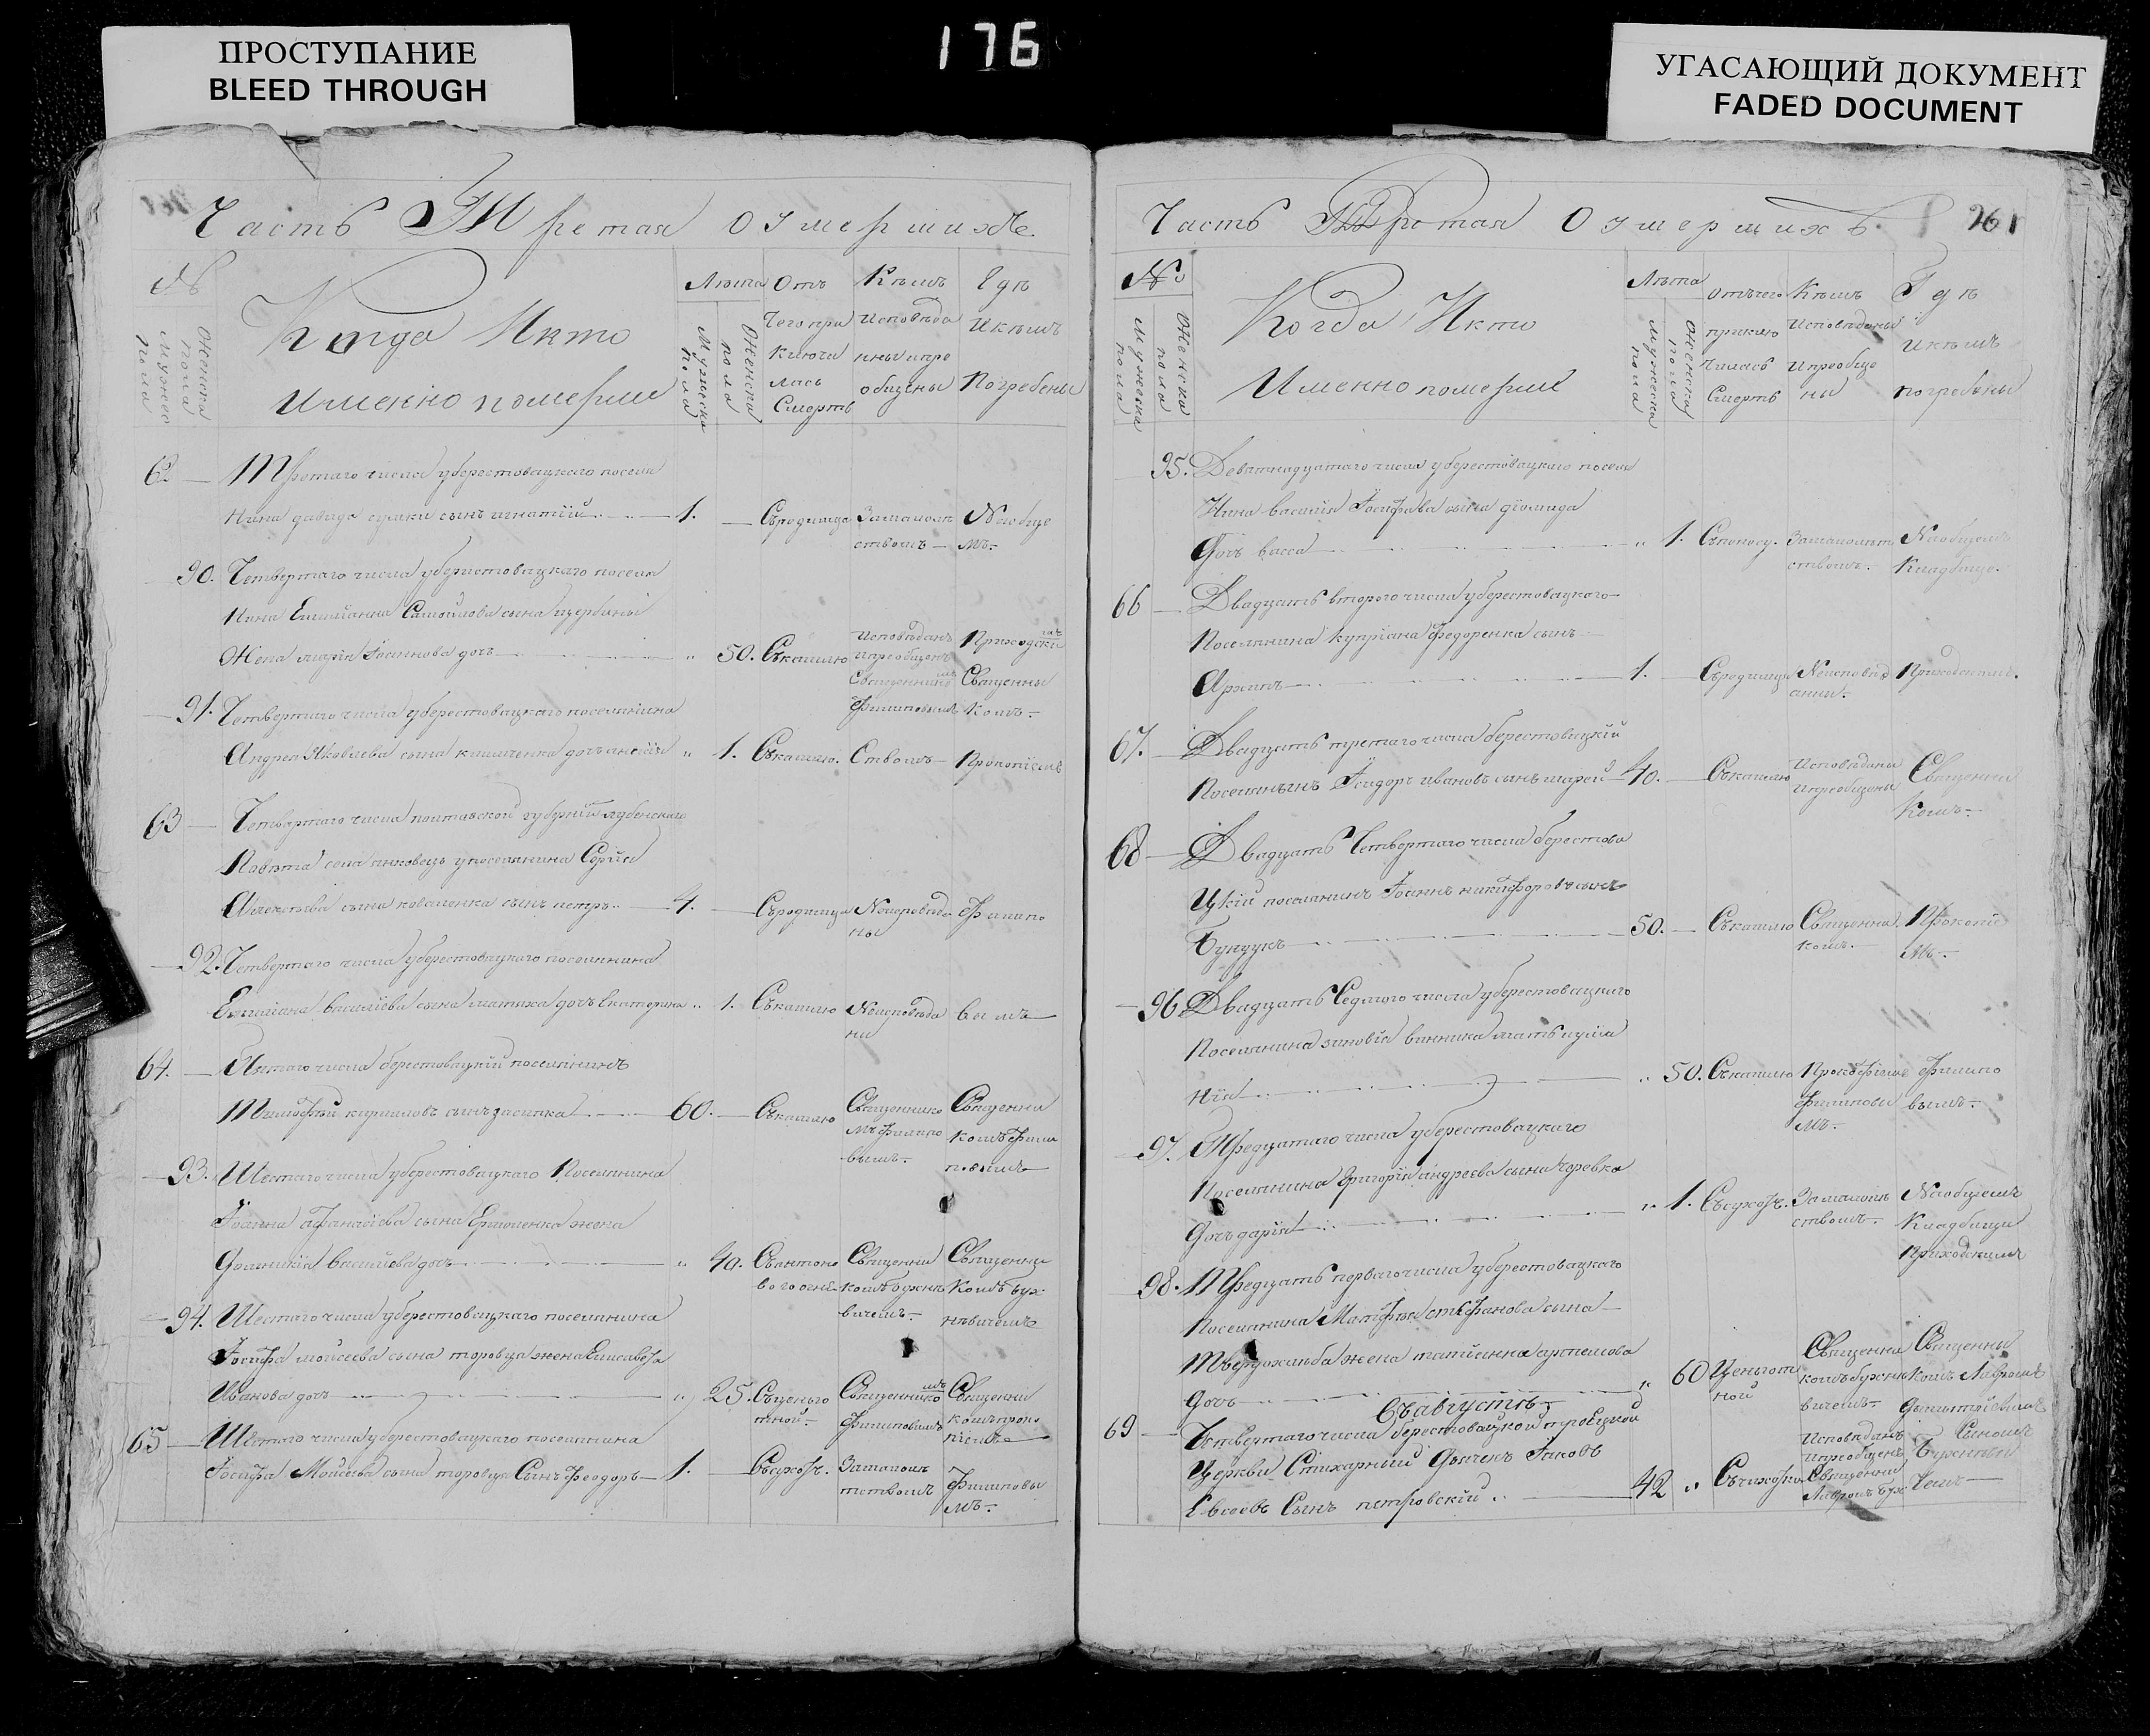 ПРОСТУПАНИЕ
BLEED THROUGH
176
УГАСАЮЩИЙ ДОКУМЕНТ
FADED DOCUMENT
Часть Третая о умершихъ
№
мужеска пола
женска пола
Когда Икто
Именно померше
Лѣта
Мужеска пола
Женска пола
Отъ
чего при
ключи
лась
Смерть
Кѣмъ
исповѣда
ны ипре
общены
Гдѣ
Икѣмъ
Погребены
62 — Третаго числа уберестовацкаго поселя
нина давида сынъ игнатій — 1. — Съродимца Замалолѣ
ствомъ — Наобще
мъ.
90. Четвертаго числа уберестовацкаго поселя
Нина Емилианна Самойлова сына щербины
Жена марія Іоаннова дочь — „ 50. Съкашлю Исповѣданъ
ипреобщенъ
Священникомъ
Филиповымъ Приходскимъ
Священни
комъ.
91. Четвертаго числа уберестовацкаго поселянина
Андрея Яковлева сына дочь „ 1. Съкашлю. Ствомъ — Прокопіемъ
63 — Четвертаго числа полтавской губерніи лубенскаго
Повѣта села поселянина
Алексѣева сына коваленка сынъ петръ — 4. — Съродимца Неисповѣда
ны Филипо
92. Четвертаго числа уберестовацкаго поселянина
Емилиана василіева сына дочь екатерина „ 1. Съкашлю Неисповѣда
ни вымъ —
64. — Пятаго числа берестовацкій поселянинъ
Тимофій кириловъ сынъ засипка — 60. — Съкашлю Священнико
мъ Филипо
вымъ. Священни
комъ Фили
повымъ
93. Шестаго числа уберестовацкаго Поселянина
Іоанна афанасіева сына Ермоленка жена
Домникія Василіева дочь — „ 40. Съантоно
ваго огня Священни
комъ бужне
вичемъ. Священни
комъ буж
невичемъ
94. Шестаго числа уберестовацкаго поселянина
Іосифа моисеева сына торовца жена Елисавефа
Иванова дочь — „ 25. Съценьго
тной. Священникомъ
Филиповымъ Священни
комъ проко
піемъ
65 — Шестаго числа уберестовацкаго поселянина
Іосифа Моисеева сына торовца Синъ Феодоръ — 1. — Съсухот. Замалол
тствомъ Филиповы
мъ.
Часть Третая О умершихъ. 261
№
Мужеска пола
Женска пола
Когда Икто
Именно померше
Лѣта
мужеска пола
Женска пола
Отъчего
приклю
чилась
Смерть
Кѣмъ
Исповѣданы
Ипреобще
ны
Гдѣ
икѣмъ
погребены
95. Девятнадцатаго числа уберестовацкаго поселя
Нина василія Іосифова сына діомида
Дочь васса — „ 1. Съпоносу. Замалолѣт
ствомъ. Наобщемъ
Кладбище.
66 — Двадцать второго числа уберестовацкаго
Поселянина купріана федоренка сынъ
Архипъ — 1. — Съродимца Неисповѣд
анни. Приходскимъ.
67. — Двадцать третаго числа берестовацкій
Поселянинъ Ісидоръ ивановъ сынъ — 40. — Съкашлю Исповѣданы
ипреобщены Священни
Комъ.
68 — Двадцать Четвертаго числа берестова
Цкій поселянинъ Іоаннъ никифоровъ сынъ
Бундукъ — 50. — Съкашлю Священни
комъ. Прокопіе
Мъ.
96 Двадцать Седмого числа уберестовацкаго
Поселянина зиновія винника мать иулиа
нія — „ 50. Съкашлю Прокофіемъ
Филиповы
мъ. Филипо
вымъ.
97. Тредцатаго числа уберестовацкаго
Поселянина Григорія андреева сына
Дочь дарія — „ 1. Съсухот. Замалолѣ
ствомъ. Наобщемъ
Кладбищи
Приходскимъ
98. Тредцать перваго числа уберестовацкаго
Поселянина Матфѣя стефанова сына
Твердохлѣба жена татианна артемова
Дочь — „ 60 Ценьгот
ной Священни
комъ бужне
вичемъ. Священни
комъ Лавромъ
Съавгустѣ
69 — Четвертаго числа берестовацкой троецкой
Церкви Стихарный Дьячекъ Іаковъ
Евсеевъ Сынъ петровскій „ — 42 „ Съчихотки Исповѣданъ
ипреобщенъ
Священни
Лавромъ буж Бужневи
чемъ —